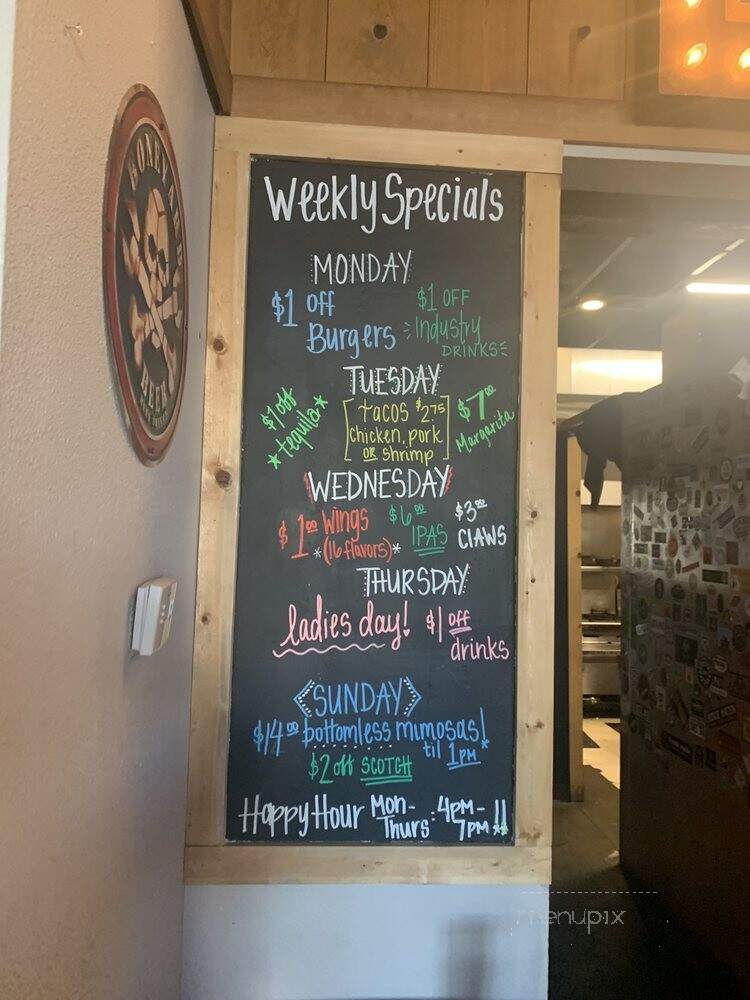 BONEYARD
BEER
Weekly Specials
MONDAY
$1 off
Burgers
$1 OFF
Industry
DRINKS
TUESDAY
$1 off
tequila
tacos $2.75
chicken, pork
OR shrimp
$7.00
Margarita
WEDNESDAY
$1.00 wings
*(16 flavors)*
$6.00
IPAS
$3.00
CLAWS
THURSDAY
ladies day!
$1 OFF
drinks
SUNDAY
$14.00 bottomless mimosas!
til 1PM*
$2 off SCOTCH
Happy Hour Mon-Thurs: 4PM-7PM!!
menupix